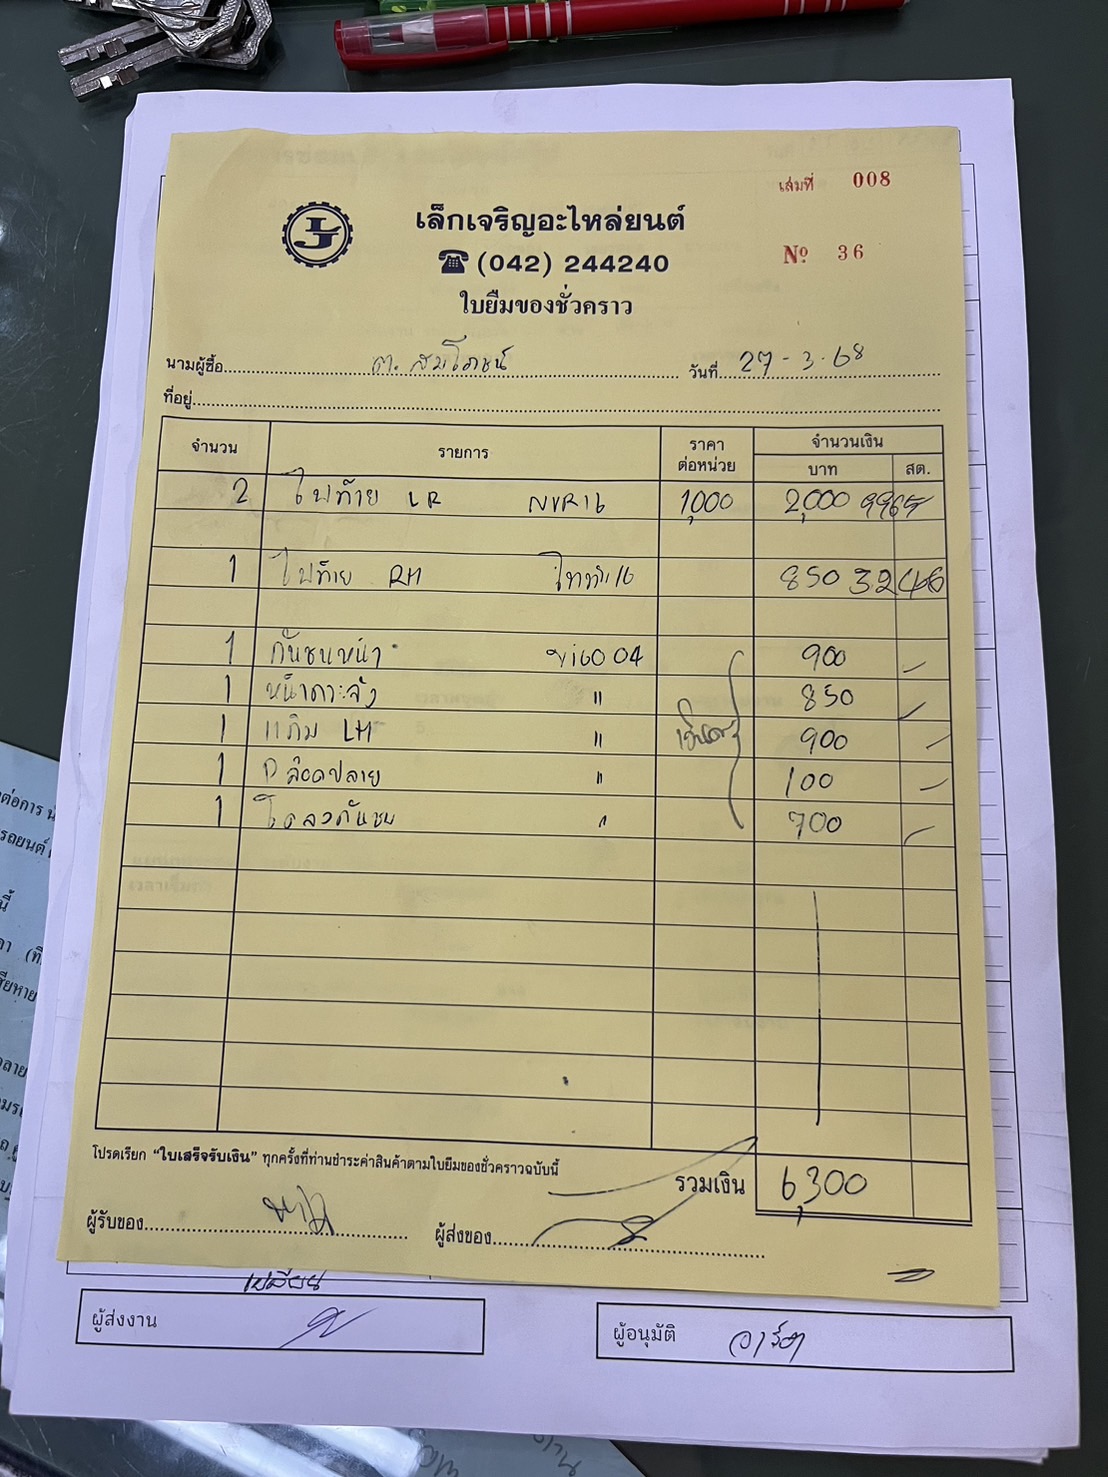 เล่มที่ 008
LJ
เล็กเจริญอะไหล่ยนต์
☎ (042) 244240
Nº 36
ใบยืมของชั่วคราว
นามผู้ซื้อ ต. สมโภชน์ วันที่ 27-3-68
ที่อยู่
จำนวน รายการ ราคาต่อหน่วย จำนวนเงิน
บาท สต.
2 ไฟท้าย LR NVR16 1,000 2,000 9965
1 ไฟท้าย RH ไททัน16 850 3246
1 กันชนหน้า vigo 04 900
1 หน้ากระจัง " 850
1 แก้ม LH " 900
1 " 100
1 โครงกันชน " 700
โปรดเรียก "ใบเสร็จรับเงิน" ทุกครั้งที่ท่านชำระค่าสินค้าตามใบยืมของชั่วคราวฉบับนี้
รวมเงิน 6,300
ผู้รับของ
ผู้ส่งของ
ผู้ส่งงาน
ผู้อนุมัติ